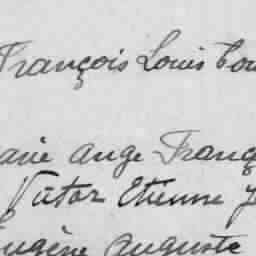 François Louis
Ange
Victor Etienne
Eugène Auguste